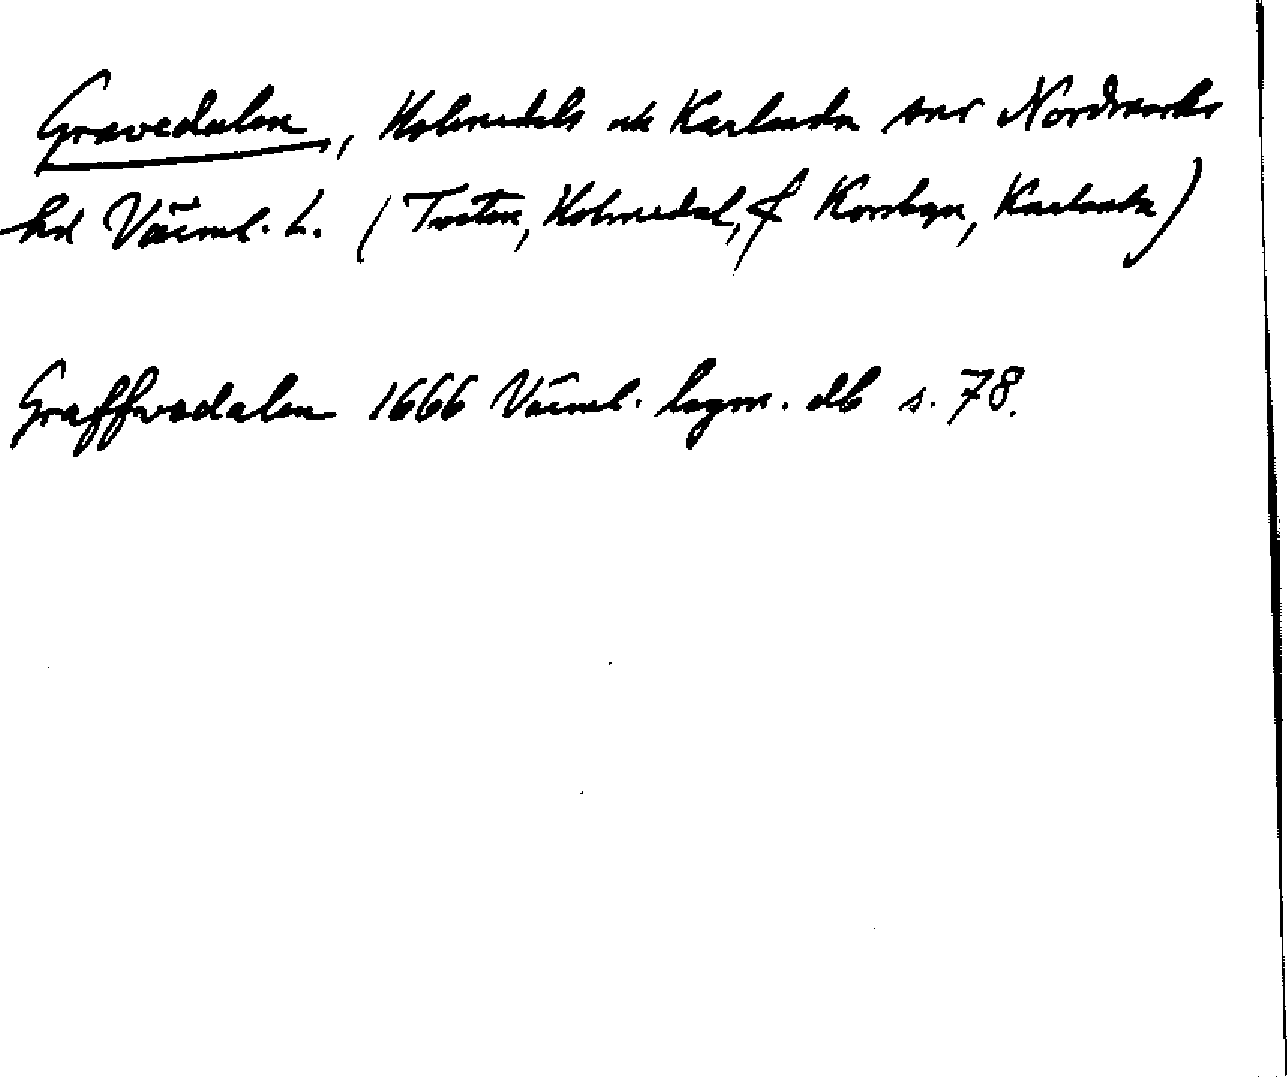 Gravedalen, Holmedals och Karlanda snr Nordmarks
hd Värml. L. (Trøten, Holmedal, f Korsbyn, Karlanda)
Graffwedalen 1666 Värml. lagm. db s. 78.